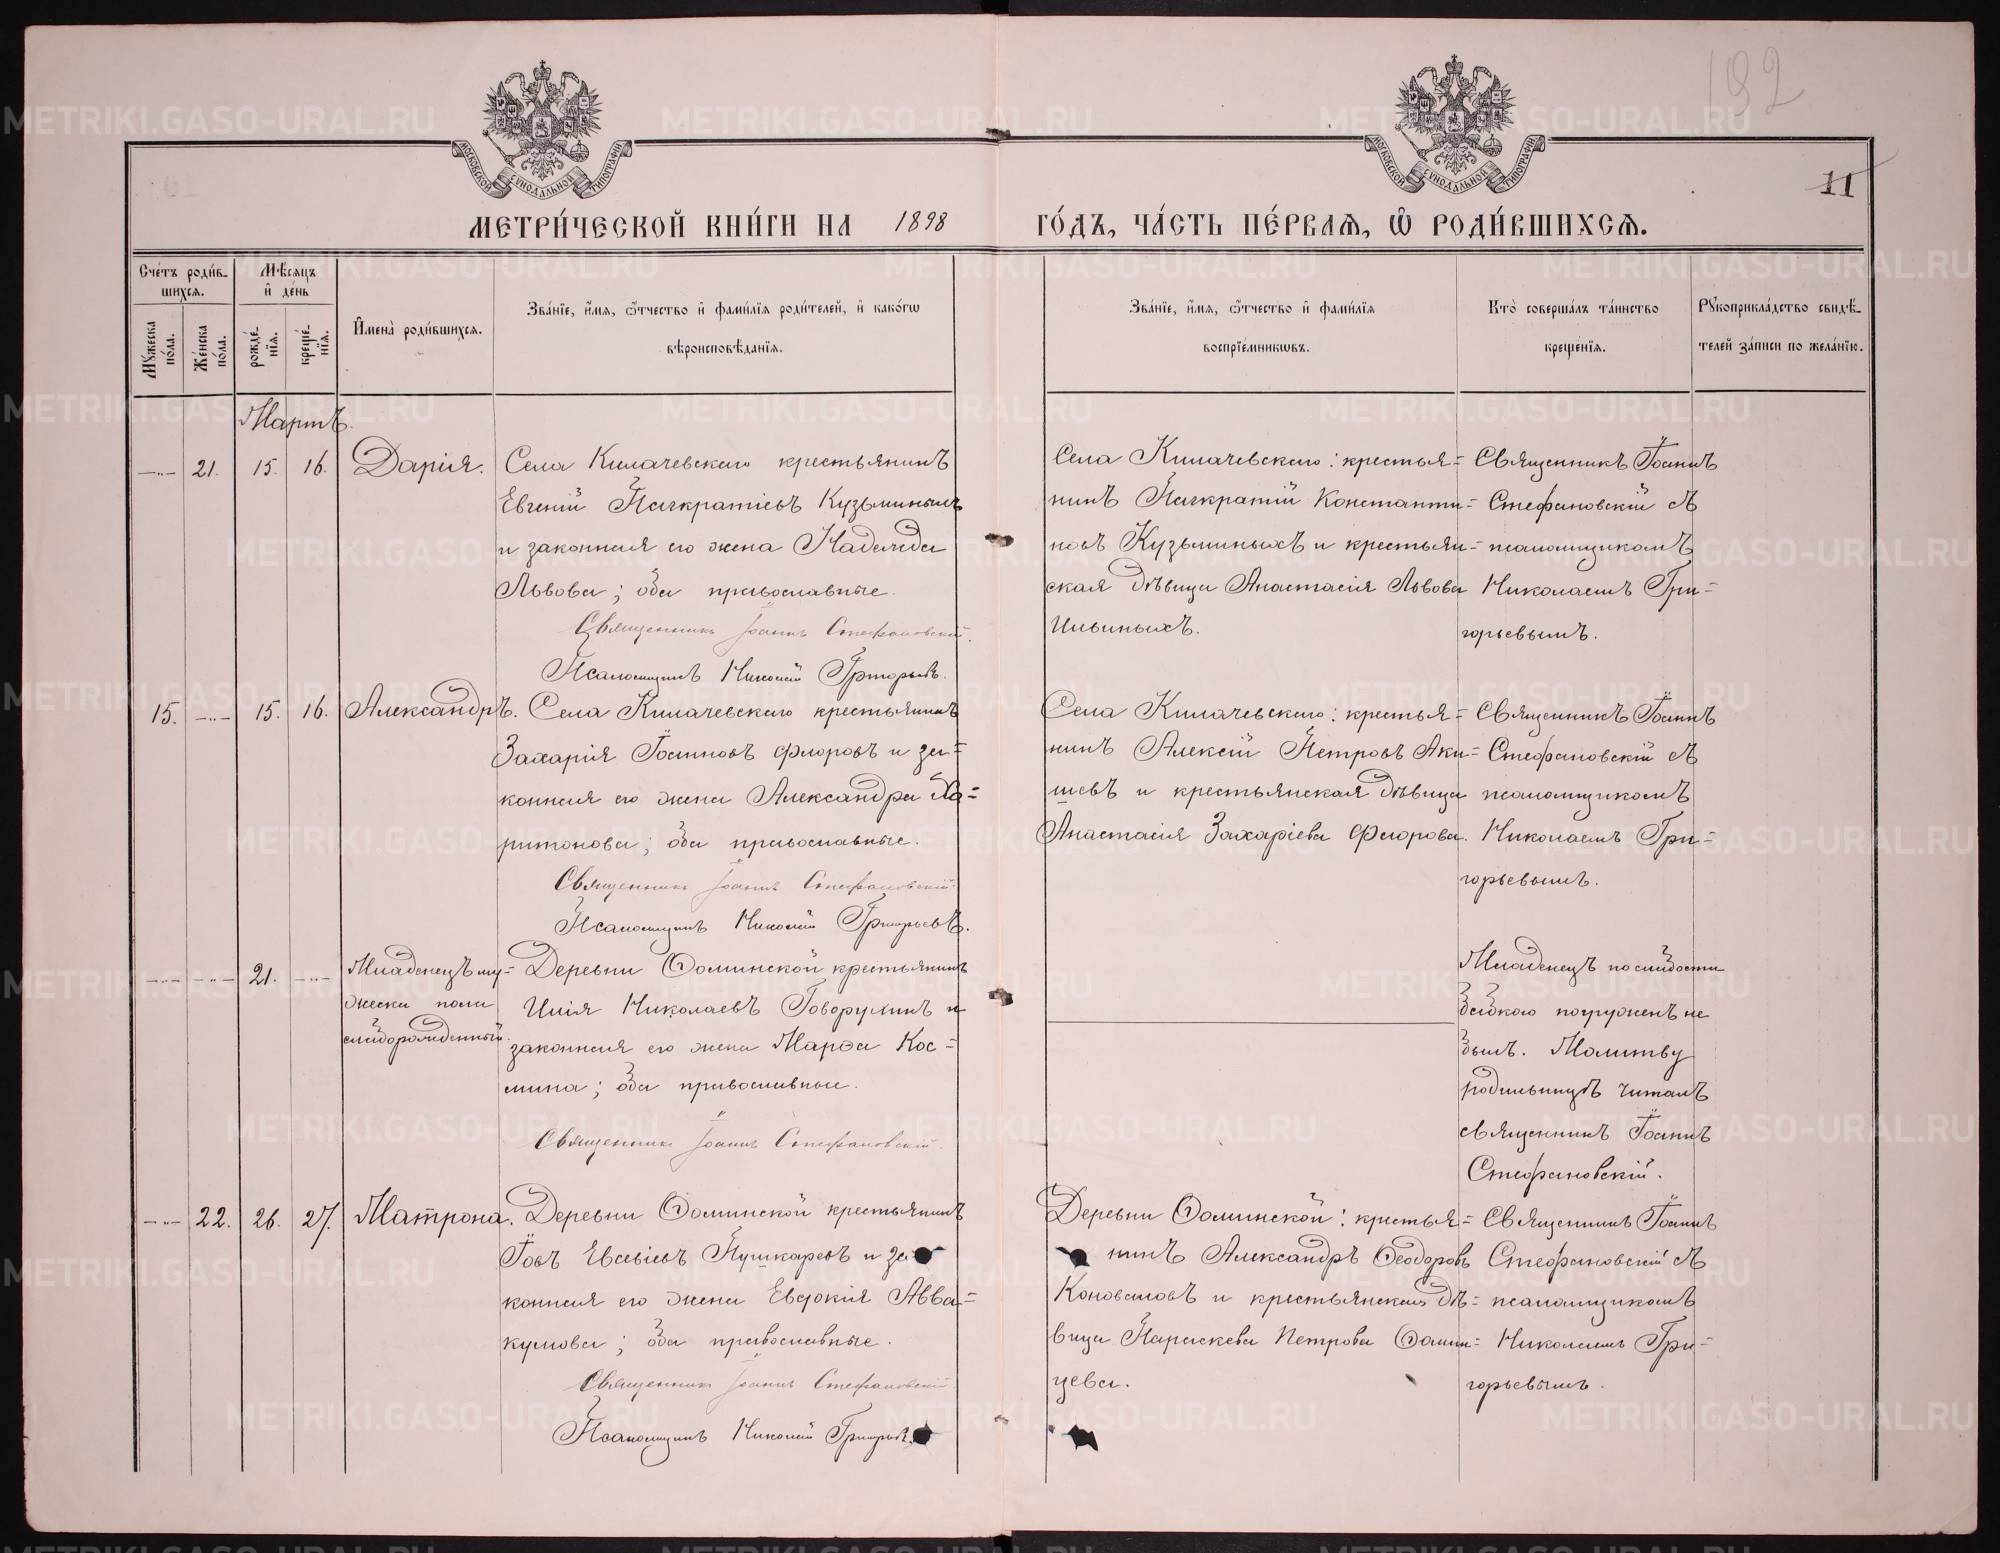 192
11
МОСКОВСКОЙ СѴНОДАЛЬНОЙ ТИПОГРАФІИ
МОСКОВСКОЙ СѴНОДАЛЬНОЙ ТИПОГРАФІИ
МЕТРИ́ЧЕСКОЙ КНИ́ГИ НА 1898 ГО́ДЪ, ЧА́СТЬ ПЕ́РВАѦ, Ѽ РОДИ́ВШИХСѦ.
Сче́тъ роди́в-
шихсѧ.
Мѣ́сѧцъ
и҆ де́нь
Мꙋ́жеска по́ла.
Же́нска по́ла.
рожде́нїѧ.
креще́нїѧ.
И҆мена̀ роди́вшихсѧ.
Зва́нїе, и҆́мѧ, ѻ҆́тчество и҆ фами́лїѧ роди́телей, и҆ како́гѡ
вѣроисповѣ́данїѧ.
Зва́нїе, и҆́мѧ, ѻ҆́тчество и҆ фами́лїѧ
воспрїе́мникѡвъ.
Кто̀ соверша́лъ та́инство
креще́нїѧ.
Рꙋкоприкла́дство свидѣ́-
телей за́писи по жела́нїю.
Мартъ.
—"— 21. 15. 16. Дарія.
Села Килачевскаго крестьянинъ
Евгеній Панкратіевъ Кузьминыхъ
и законная его жена Надежда
Львова; оба православные.
Священникъ Іоаннъ Стефановскій.
Псаломщикъ Николай Григорьевъ.
Села Килачевскаго: крестья=
нинъ Панкратій Константи=
новъ Кузьминыхъ и крестьян=
ская дѣвица Анастасія Львова
Ильиныхъ.
Священникъ Іоаннъ
Стефановскій съ
псаломщикомъ
Николаемъ Гри=
горьевымъ.
15. —"— 15. 16. Александръ.
Села Килачевскаго крестьянинъ
Захарія Іоанновъ Флоровъ и за=
конная его жена Александра Ха=
ритонова; оба православные.
Священникъ Іоаннъ Стефановскій.
Псаломщикъ Николай Григорьевъ.
Села Килачевскаго: крестья=
нинъ Алексій Петровъ Аки=
шевъ и крестьянская дѣвица
Анастасія Захаріева Флорова.
Священникъ Іоаннъ
Стефановскій съ
псаломщикомъ
Николаемъ Гри=
горьевымъ.
—"— —"— 21. —"—
Младенецъ му=
жеска пола
слаборожденный.
Деревни Ѳоминской крестьянинъ
Илія Николаевъ Говорухинъ и
законная его жена Марѳа Кос=
мина; оба православные.
Священникъ Іоаннъ Стефановскій.
Младенецъ по слабости
бабкою погруженъ не
былъ. Молитву
родильницѣ читалъ
священникъ Іоаннъ
Стефановскій.
—"— 22. 26. 27. Матрона.
Деревни Ѳоминской крестьянинъ
Іовъ Евсевіевъ Пушкаревъ и за
конная его жена Евдокія Авва=
кумова; оба православные.
Священникъ Іоаннъ Стефановскій.
Псаломщикъ Николай Григорьевъ
Деревни Ѳоминской: крестья=
нинъ Александръ Ѳеодоровъ
Коноваловъ и крестьянская дѣ=
вица Параскева Петрова Ѳомин=
цева.
Священникъ Іоаннъ
Стефановскій съ
псаломщикомъ
Николаемъ Гри=
горьевымъ.
METRIKI.GASO-URAL.RU